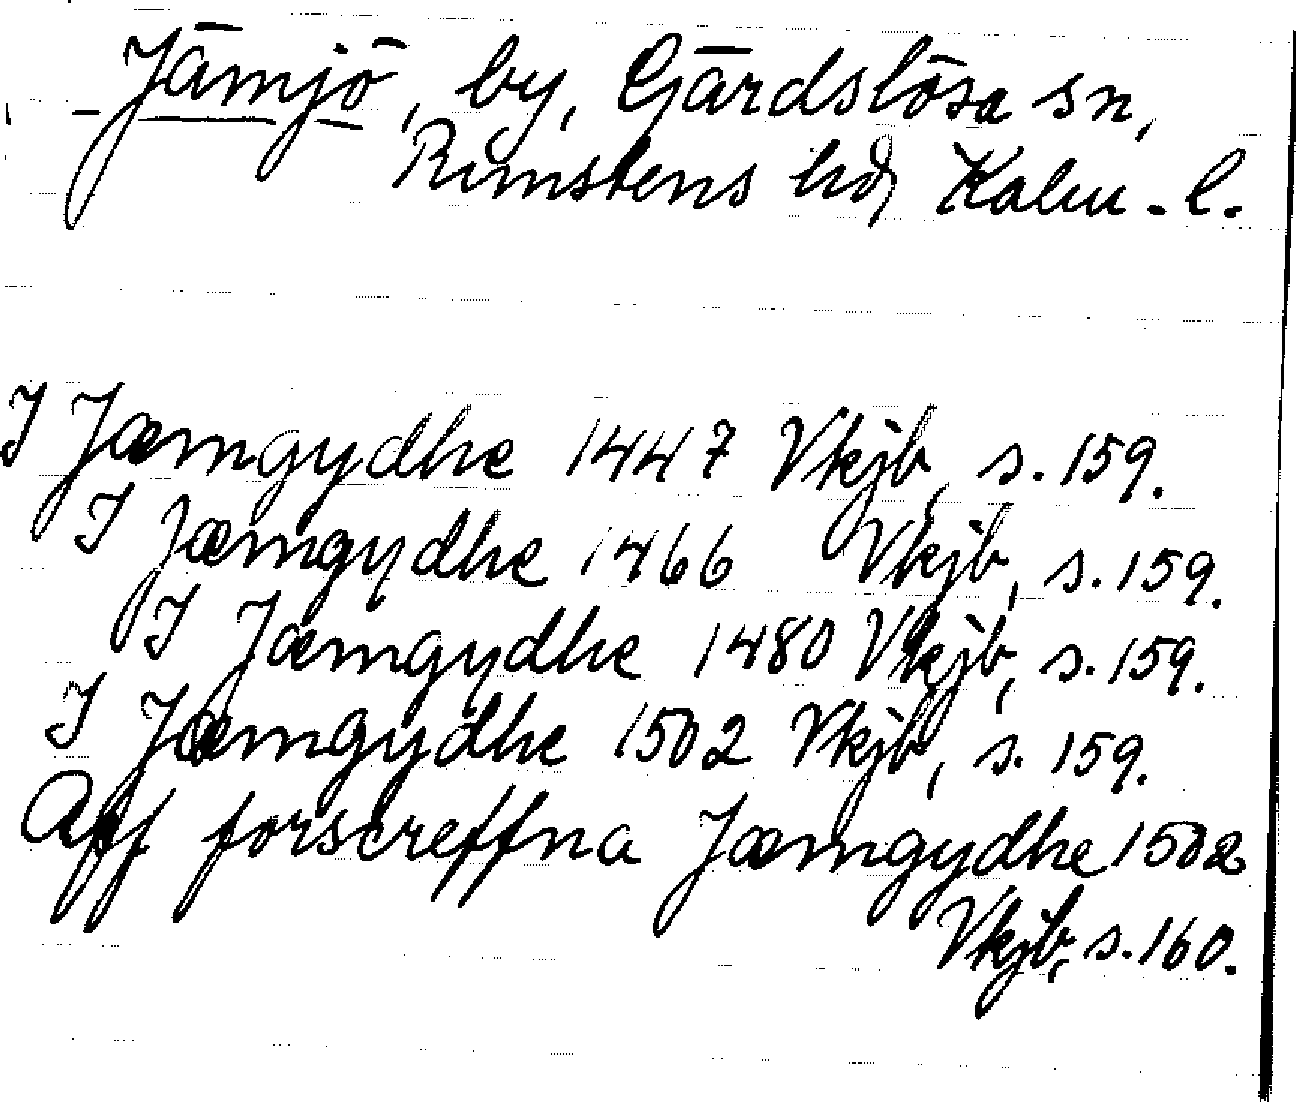 Jämjö, by, Gärdslösa sn,
Runstens hd, Kalm. l.
I Jæmgydhe 1447 Vkjb, s. 159.
I Jæmgydhe 1466 Vkjb, s. 159.
I Jæmgydhe 1480 Vkjb, s. 159.
I Jæmgydhe 1502 Vkjb, s. 159.
Aff forscreffna Jæmgydhe 1502
Vkjb, s. 160.